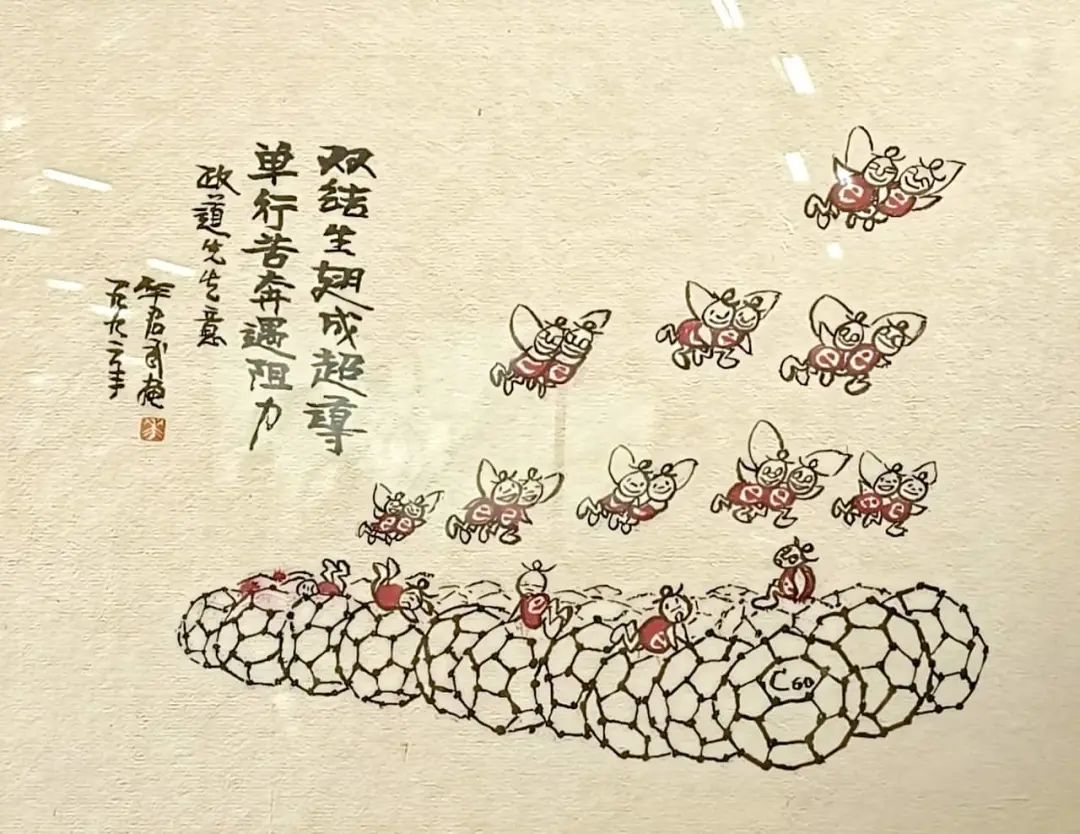 双结生翅成超导
单行苦奔遇阻力
政道先生意
华君武
一九九二年
e e
e e
e e
e e
e e
e e
e e
e
e
C60